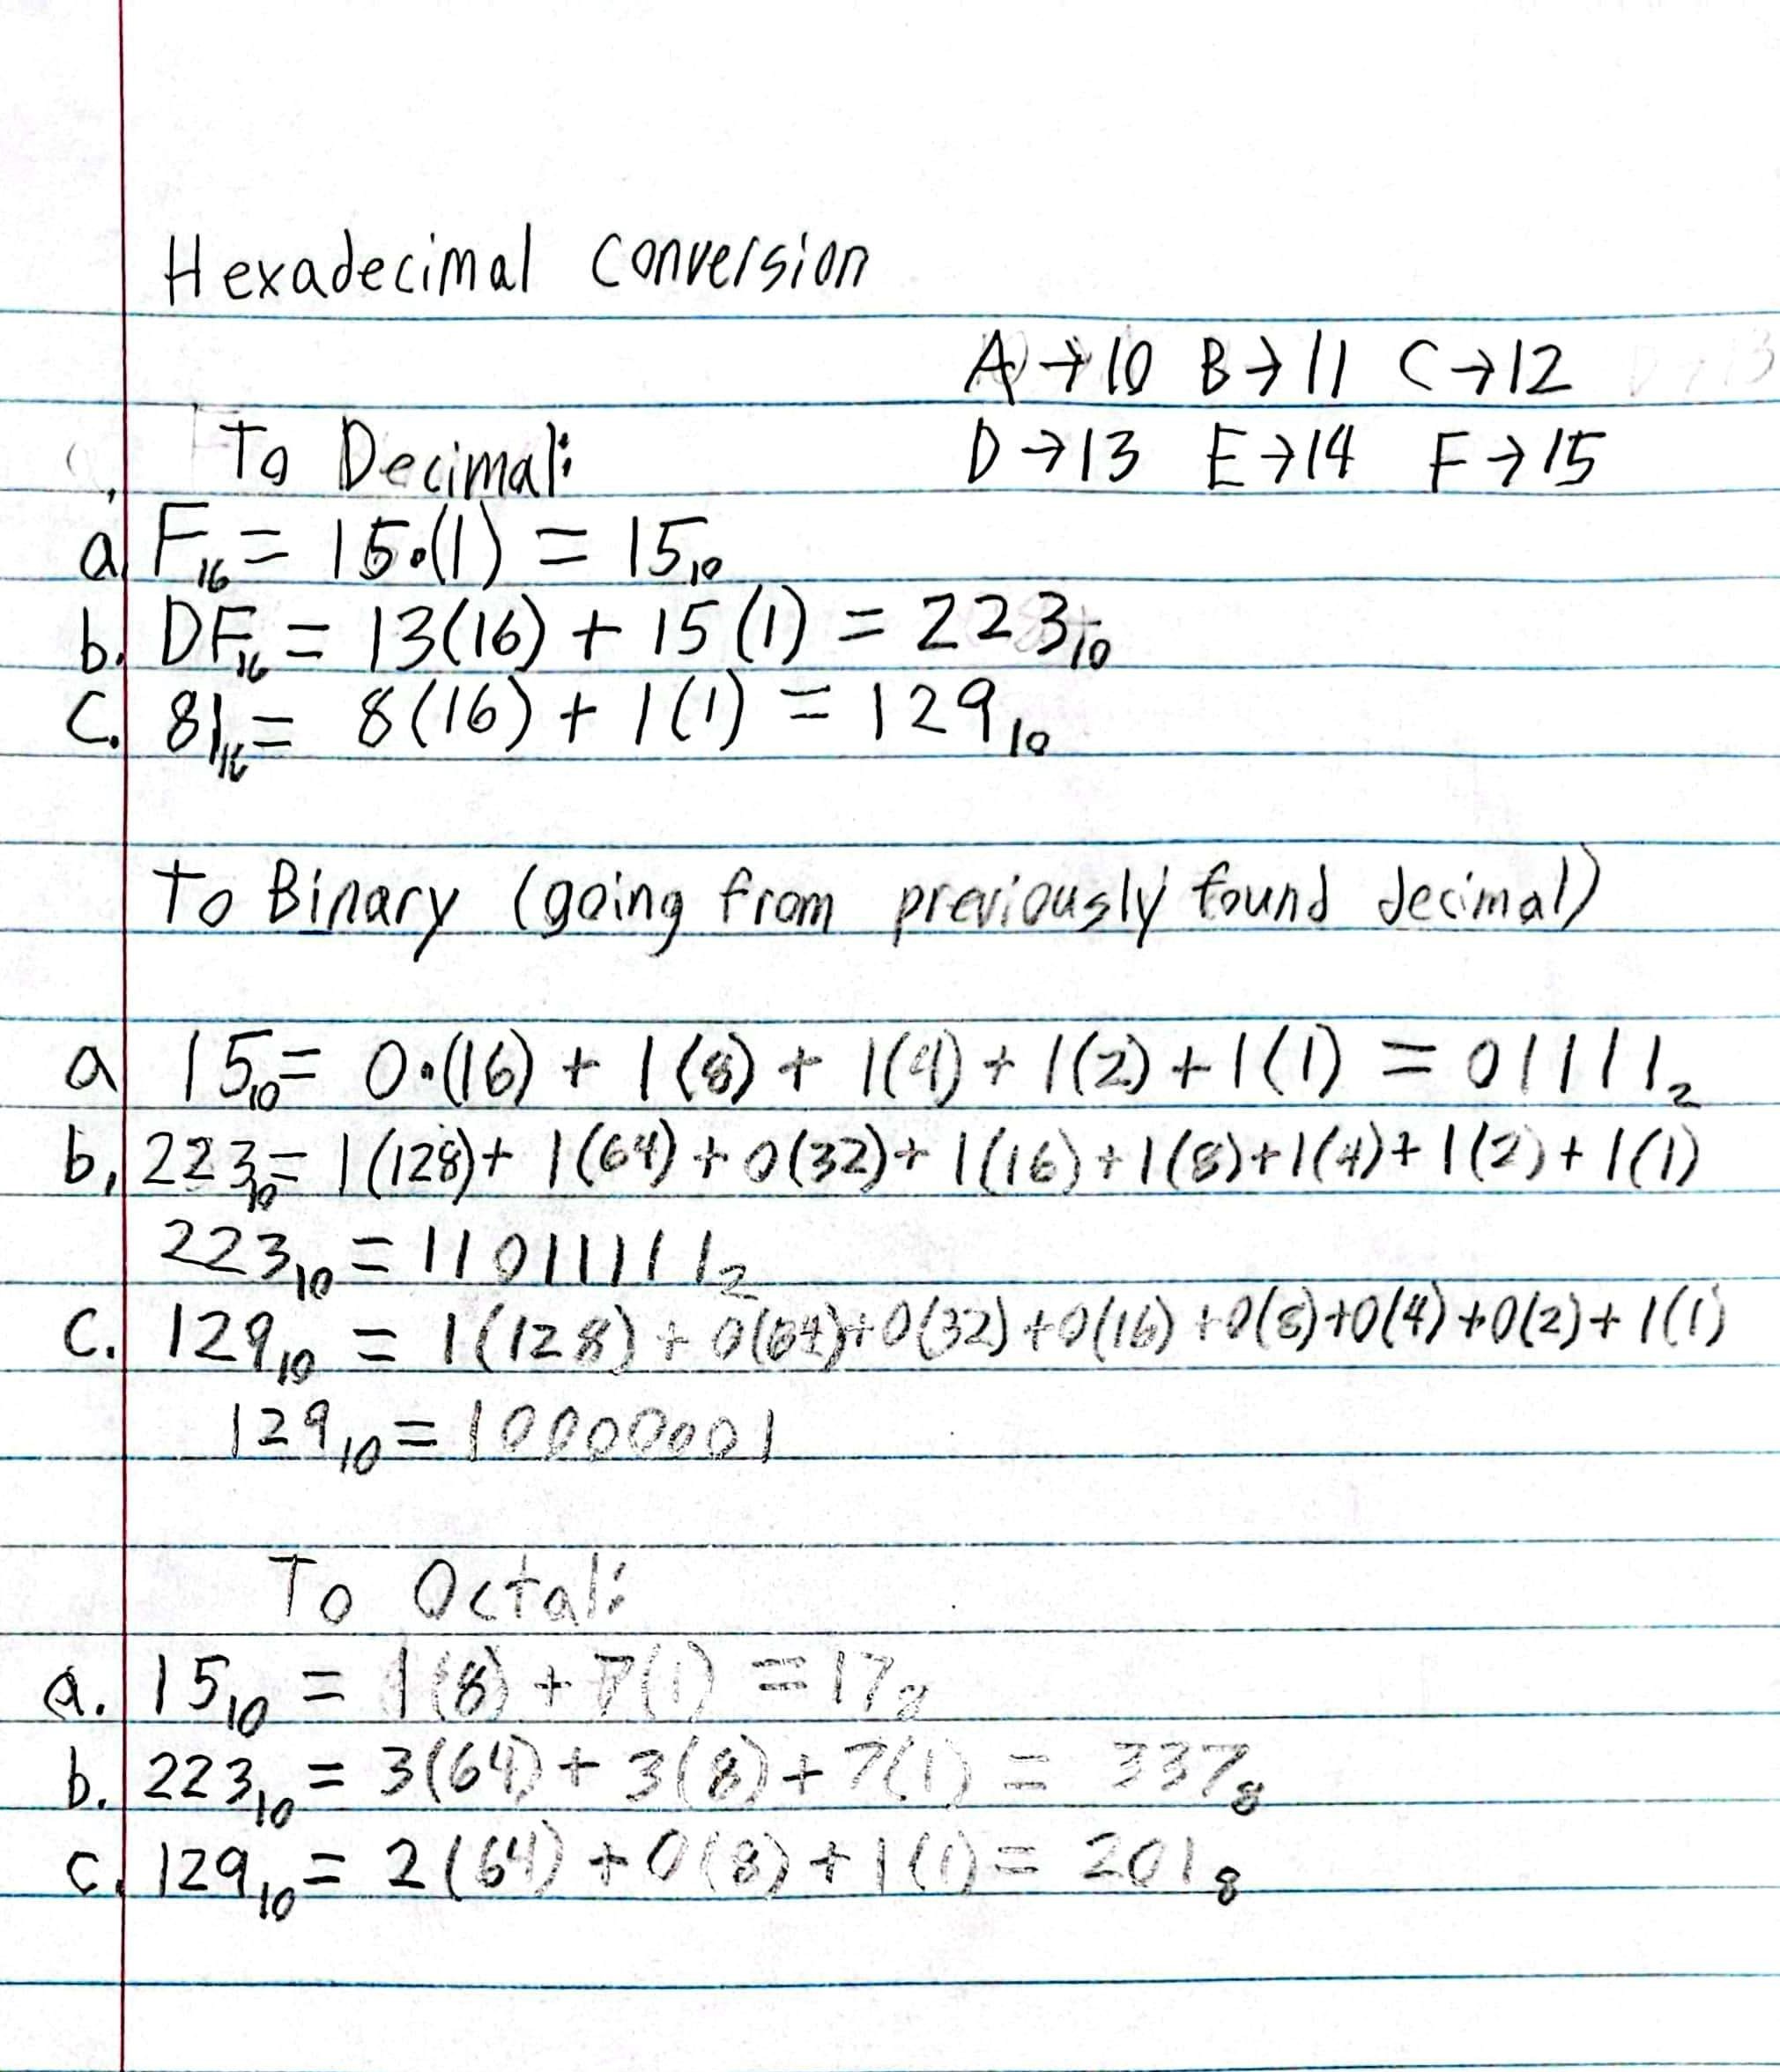 Hexadecimal Conversion
A→10 B→11 C→12
To Decimal:
D→13 E→14 F→15
a F₁₆ = 15•(1) = 15₁₀
b. DF₁₆ = 13(16) + 15(1) = 223₁₀
C. 81₁₆ = 8(16) + 1(1) = 129₁₀
To Binary (going from previously found decimal)
a 15₁₀ = 0•(16) + 1(8) + 1(4) + 1(2) + 1(1) = 01111₂
b. 223₁₀ = 1(128) + 1(64) + 0(32) + 1(16) + 1(8) + 1(4) + 1(2) + 1(1)
223₁₀ = 11011111₂
C. 129₁₀ = 1(128) + 0(64) + 0(32) + 0(16) + 0(8) + 0(4) + 0(2) + 1(1)
129₁₀ = 10000001
To Octal:
a. 15₁₀ = 1(8) + 7(1) = 17₈
b. 223₁₀ = 3(64) + 3(8) + 7(1) = 337₈
c. 129₁₀ = 2(64) + 0(8) + 1(1) = 201₈